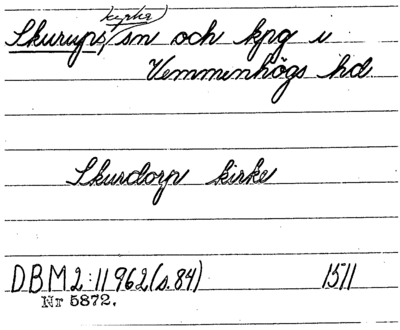 kyrka
Skurups, sn och kpg i
Vemmenhögs hd
Skurdorp kirke
DBM 2:11 962 (s. 84) 1511
Nr 5872.